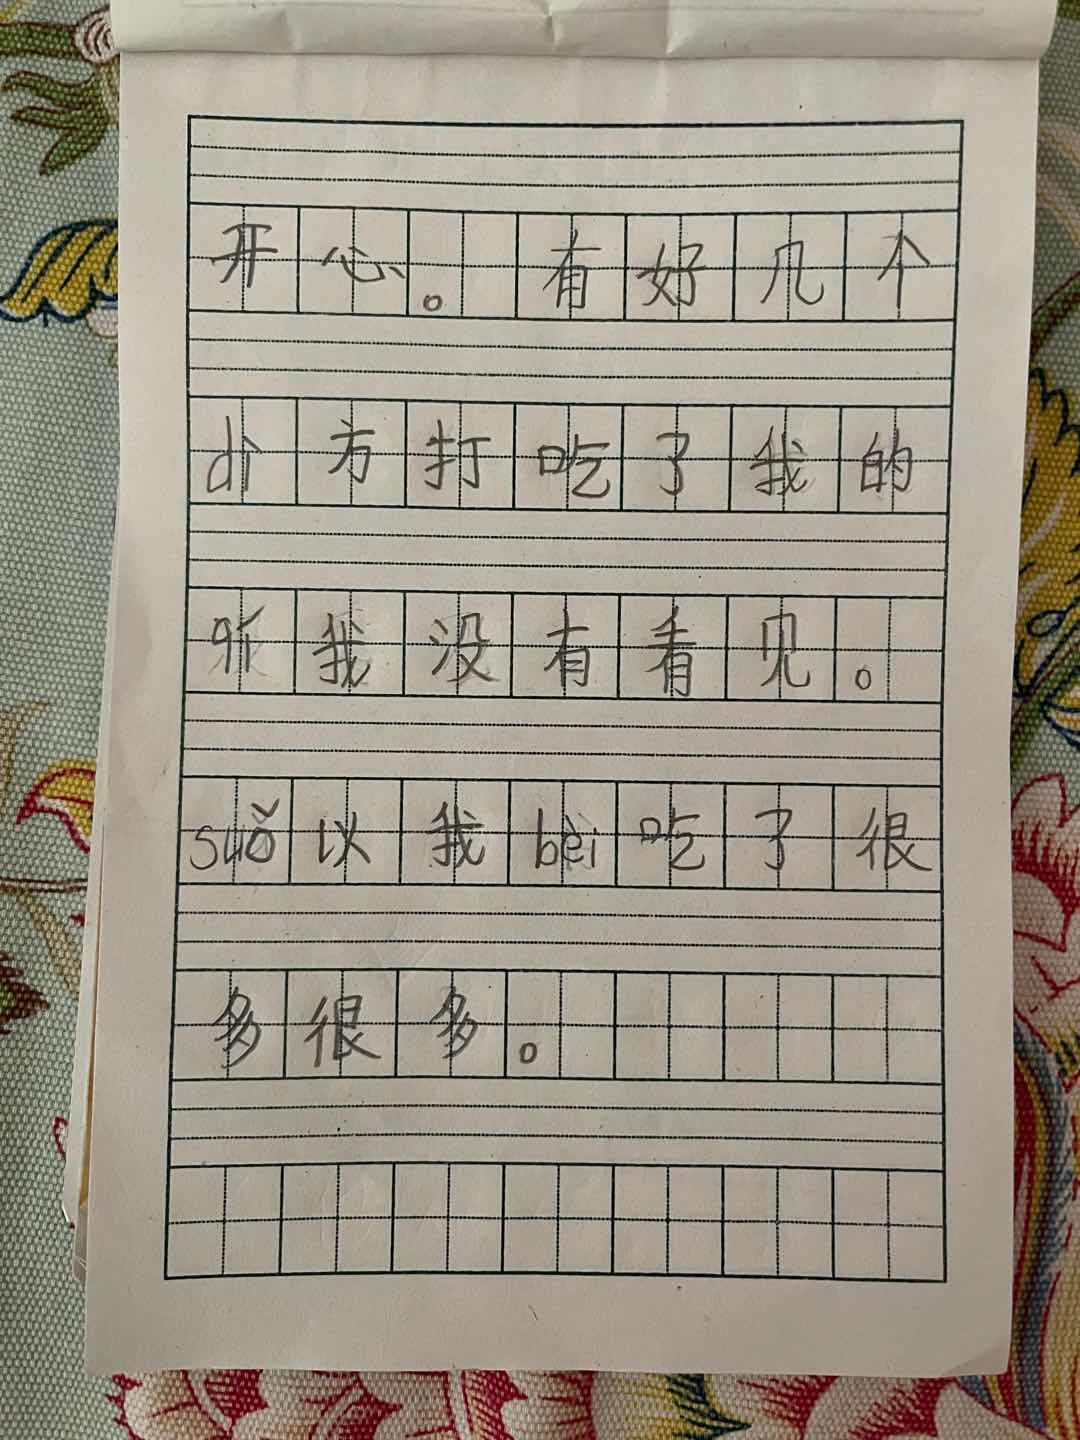 开心。有好几个
dì方打吃了我的
qí我没有看见。
suǒ以我bèi吃了很
多很多。